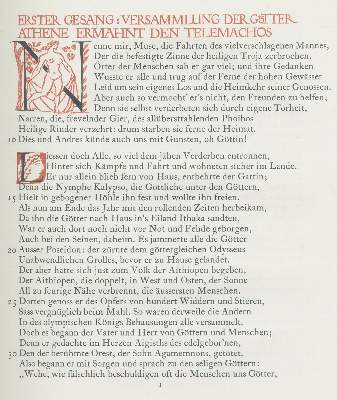 ERSTER GESANG: VERSAMMLUNG DER GÖTTER
ATHENE ERMAHNT DEN TELEMACHOS
Nenne mir, Muse, die Fahrten des vielverschlagenen Mannes,
Der die befestigte Zinne der heiligen Troja zerbrochen,
Orter der Menschen sah er gar viel; und ihre Gedanken
Wusste er alle und trug auf der Ferne der hohen Gewässer
Leid um sein eigenes Los und die Heimkehr seiner Genossen.
Aber auch so vermocht' er's nicht, den Freunden zu helfen;
Denn sie selbst verderbeten sich durch eigene Torheit,
Narren, die, frevelnder Gier, des allüberstrahlenden Phoibos
Heilige Rinder verzehrt: drum starben sie ferne der Heimat.
10 Dies und Andres künde auch uns mit Gunsten, oh Göttin!
Dessen doch Alle, so viel dem jähen Verderben entronnen,
Hinter sich Kämpfe und Fahrt und wohneten sicher im Lande.
Er nur allein blieb fern von Haus, entbehrte der Gattin;
Denn die Nymphe Kalypso, die Göttliche unter den Göttern,
15 Hielt in gebogener Höhle ihn fest und wollte ihn freien.
Als nun am Ende das Jahr mit den rollenden Zeiten herbeikam,
Da ihn die Götter nach Haus in's Eiland Ithaka sandten,
War er auch dort noch nicht vor Not und Fehde geborgen,
Auch bei den Seinen, daheim. Es jammerte alle die Götter
20 Ausser Poseidon: der zürnte dem göttergleichen Odysseus
Unabwendlichen Grolles, bevor er zu Hause gelandet.
Der aber hatte sich just zum Volk der Aithiopen begeben,
Der Aithiopen, die doppelt, in West und Osten, der Sonne
All zu feurige Nähe verbrennt, die äussersten Menschen.
25 Dorten genoss er des Opfers von hundert Widdern und Stieren,
Sass vergnüglich beim Mahl. So waren derweile die Andern
In des olympischen Königs Behausungen alle versammelt.
Doch es begann der Vater und Herr von Göttern und Menschen;
Denn er gedachte im Herzen Aigisths des edelgebor'nen,
30 Den der berühmte Orest, der Sohn Agamemnons, getötet.
Also begann er mit Sorgen und sprach zu den seligen Göttern:
„Wehe, wie fälschlich beschuldigen oft die Menschen uns Götter,
1